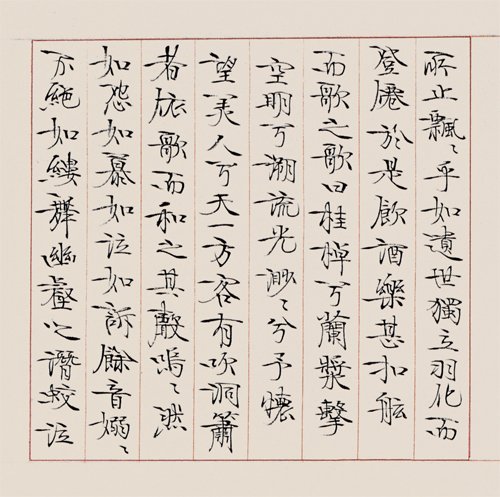 所止飄〻乎如遺世獨立羽化而
登僊於是飲酒樂甚扣舷
而歌之歌曰桂棹兮蘭槳擊
空明兮溯流光渺〻兮予懷
望美人兮天一方客有吹洞簫
者依歌而和之其聲嗚〻然
如怨如慕如泣如訴餘音嫋〻
不絕如縷舞幽壑之潛蛟泣